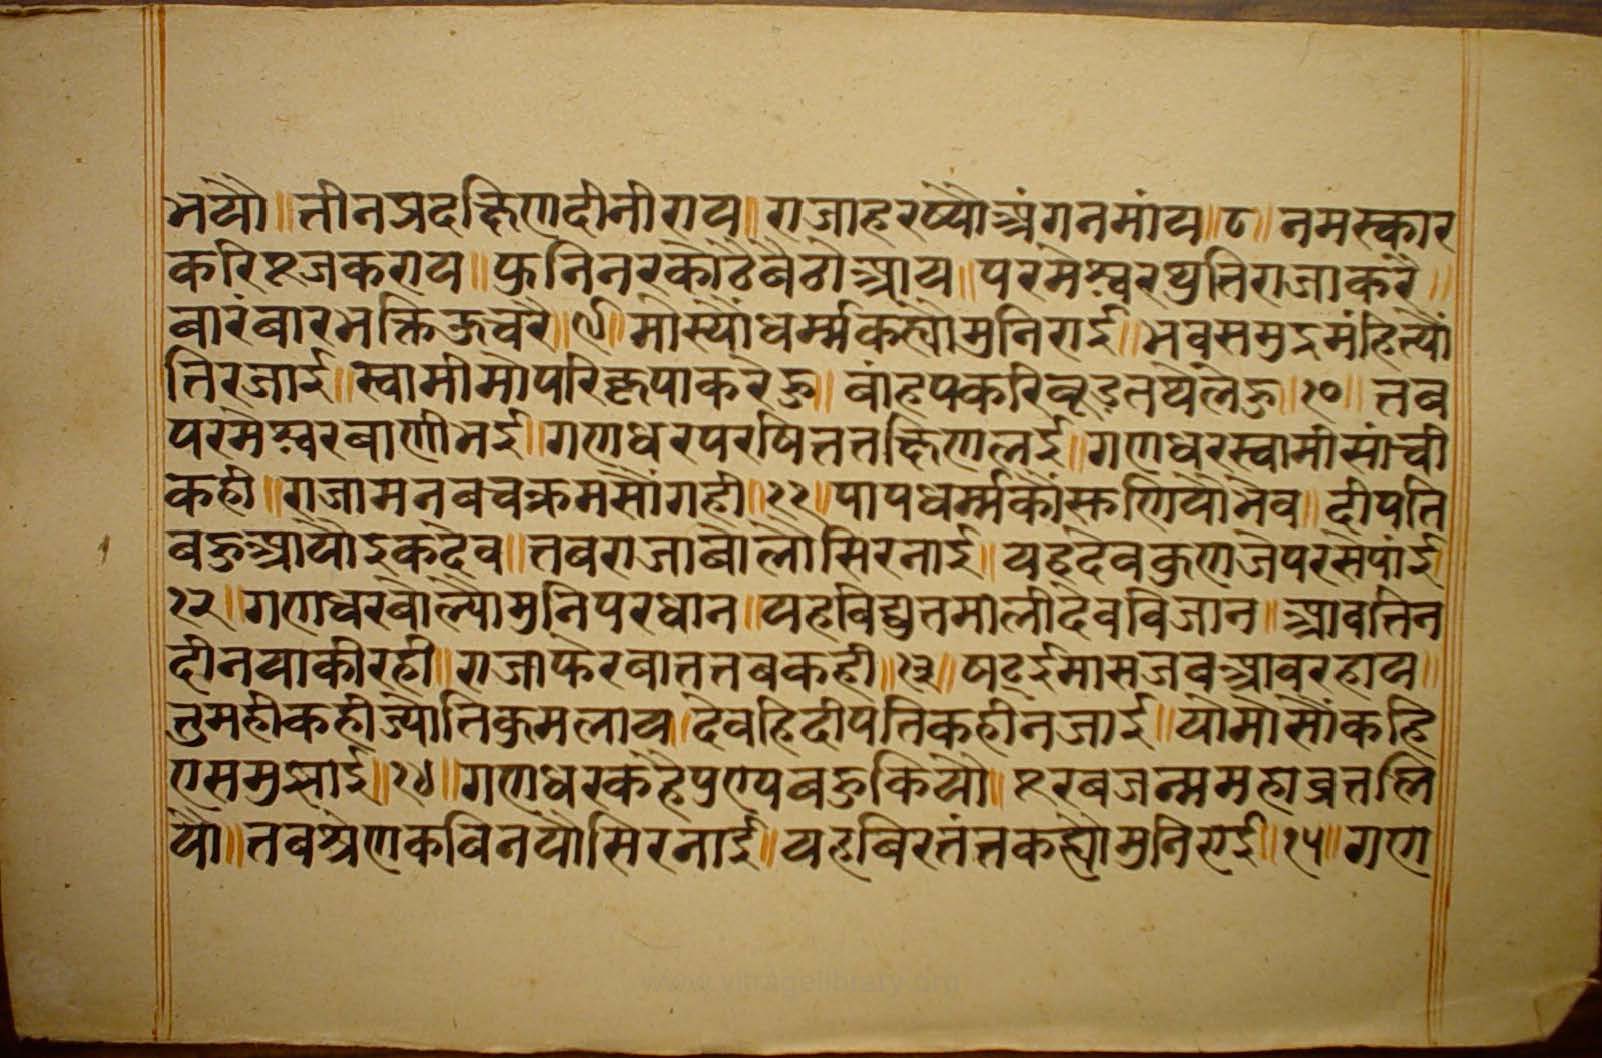 भयौ॥ तीनप्रदक्षिणदीनीराय॥ राजाहरष्यौअंगनमांय॥८॥ नमस्कार
करिपूजकराय॥ फुनिनरकोठैबैठोआय॥ परमेस्वरथुतिराजाकरै॥
बारंबारभक्तिऊचरै॥९॥ मोस्यौंधर्म्मकह्योमुनिराई॥ भवसमुद्रमंहितैत्यौं
तिरजाई॥ स्वामीमोपरिकृपाकरेहु॥ बांहपकरिबूडतयेलेहु॥१०॥ तब
परमेस्वरबाणीभई॥ गणधरपरषितततक्षिणलई॥ गणधरस्वामीसांची
कही॥ राजामनबचक्रमसौंगही॥११॥ पापधर्म्मकौसुणियौभेव॥ दीपति
बहुआयौइकदेव॥ तबराजाबोलौसिरनाई॥ यहदेवकुणजेपरसेपांई
१२॥ गणधरबोल्यौमुनिपरधान॥ यहविद्युतमालीदेवविजान॥ आवतिन
दीनयाकीरही॥ राजाफेरबाततबकही॥१३॥ षट्ईमासजबआवरहाय॥
तुमहीकहीज्योतिकुमलाय॥ देवहिदीपतिकहीनजाई॥ योमोसौंकहि
एसमुझाई॥१४॥ गणधरकहैपुण्यबहुकियौ॥ पूरबजन्ममहाव्रतलि
यौ॥ तबश्रेणकविनयौसिरनाई॥ यहबिरतंतकह्यौमुनिराई॥१५॥ गण
www.vitragelibrary.org